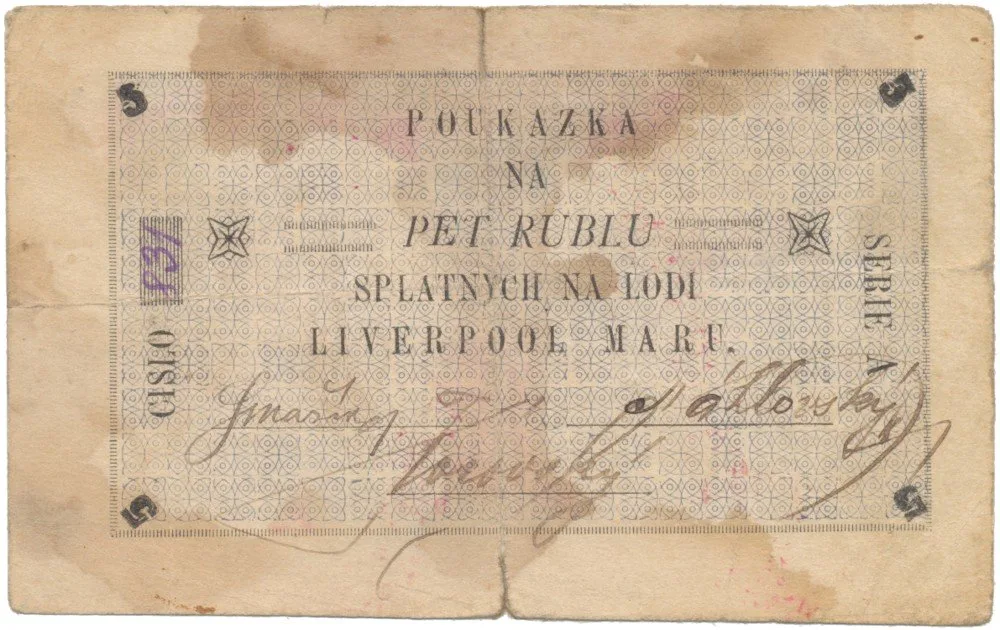 5 5
POUKAZKA
NA
PET RUBLU
SPLATNYCH NA LODI
LIVERPOOL MARU.
CISLO 831
SERIE A
5 5